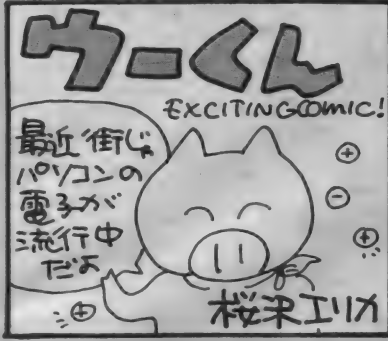 ウーくん
EXCITING COMIC!
最近街じゃ
パソコンの
電子が
流行中
だよ
桜沢エリカ